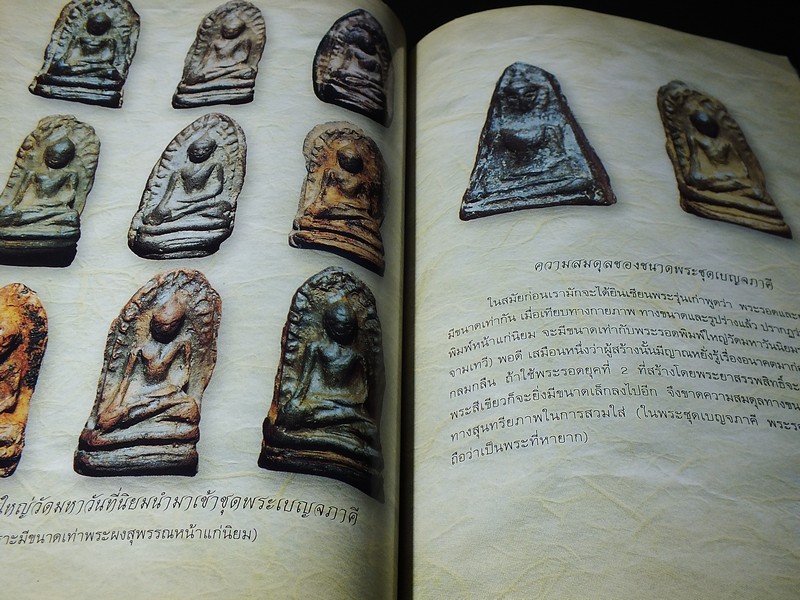 ใหญ่(วัดมหาวันที่นิยมนำมาเข้าชุดพระเบญจภาคี
ราะมีขนาดเท่าพระผงสุพรรณหน้าแก่นิยม)
ความสมดุลของขนาดพระชุดเบญจภาคี
ในสมัยก่อนเรามักจะได้ยินเซียนพระรุ่นเก่าพูดว่า พระรอดและ
มีขนาดเท่ากัน เมื่อเทียบทางกายภาพ ทางขนาดและรูปร่างแล้ว ปรากฏว่
พิมพ์หน้าแก่นิยม จะมีขนาดเท่ากับพระรอดพิมพ์ใหญ่วัดมหาวันนิยม
จามเทวี) พอดี เสมือนหนึ่งว่าผู้สร้างนั้นมีญาณหยั่งรู้เรื่องอนาคตมาก่
กลมกลืน ถ้าใช้พระรอดยุคที่ 2 ที่สร้างโดยพระยาสรรพสิทธิ์จะ
พระสีเขียวก็จะยิ่งมีขนาดเล็กลงไปอีก จึงขาดความสมดุลทางขน
ทางสุนทรียภาพในการสวมใส่ (ในพระชุดเบญจภาคี พระร
ถือว่าเป็นพระที่หายาก)